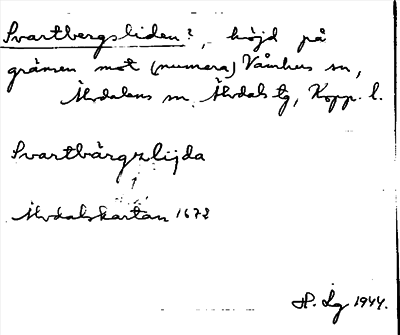 Svartbergsliden?, höjd på
gränsen mot (numera) Våmhus sn,
Älvdalens sn Älvdals tg, Kopp. l.
Svartbärgzlijda
Älvdalskartan 1672
H. Lg 1944.